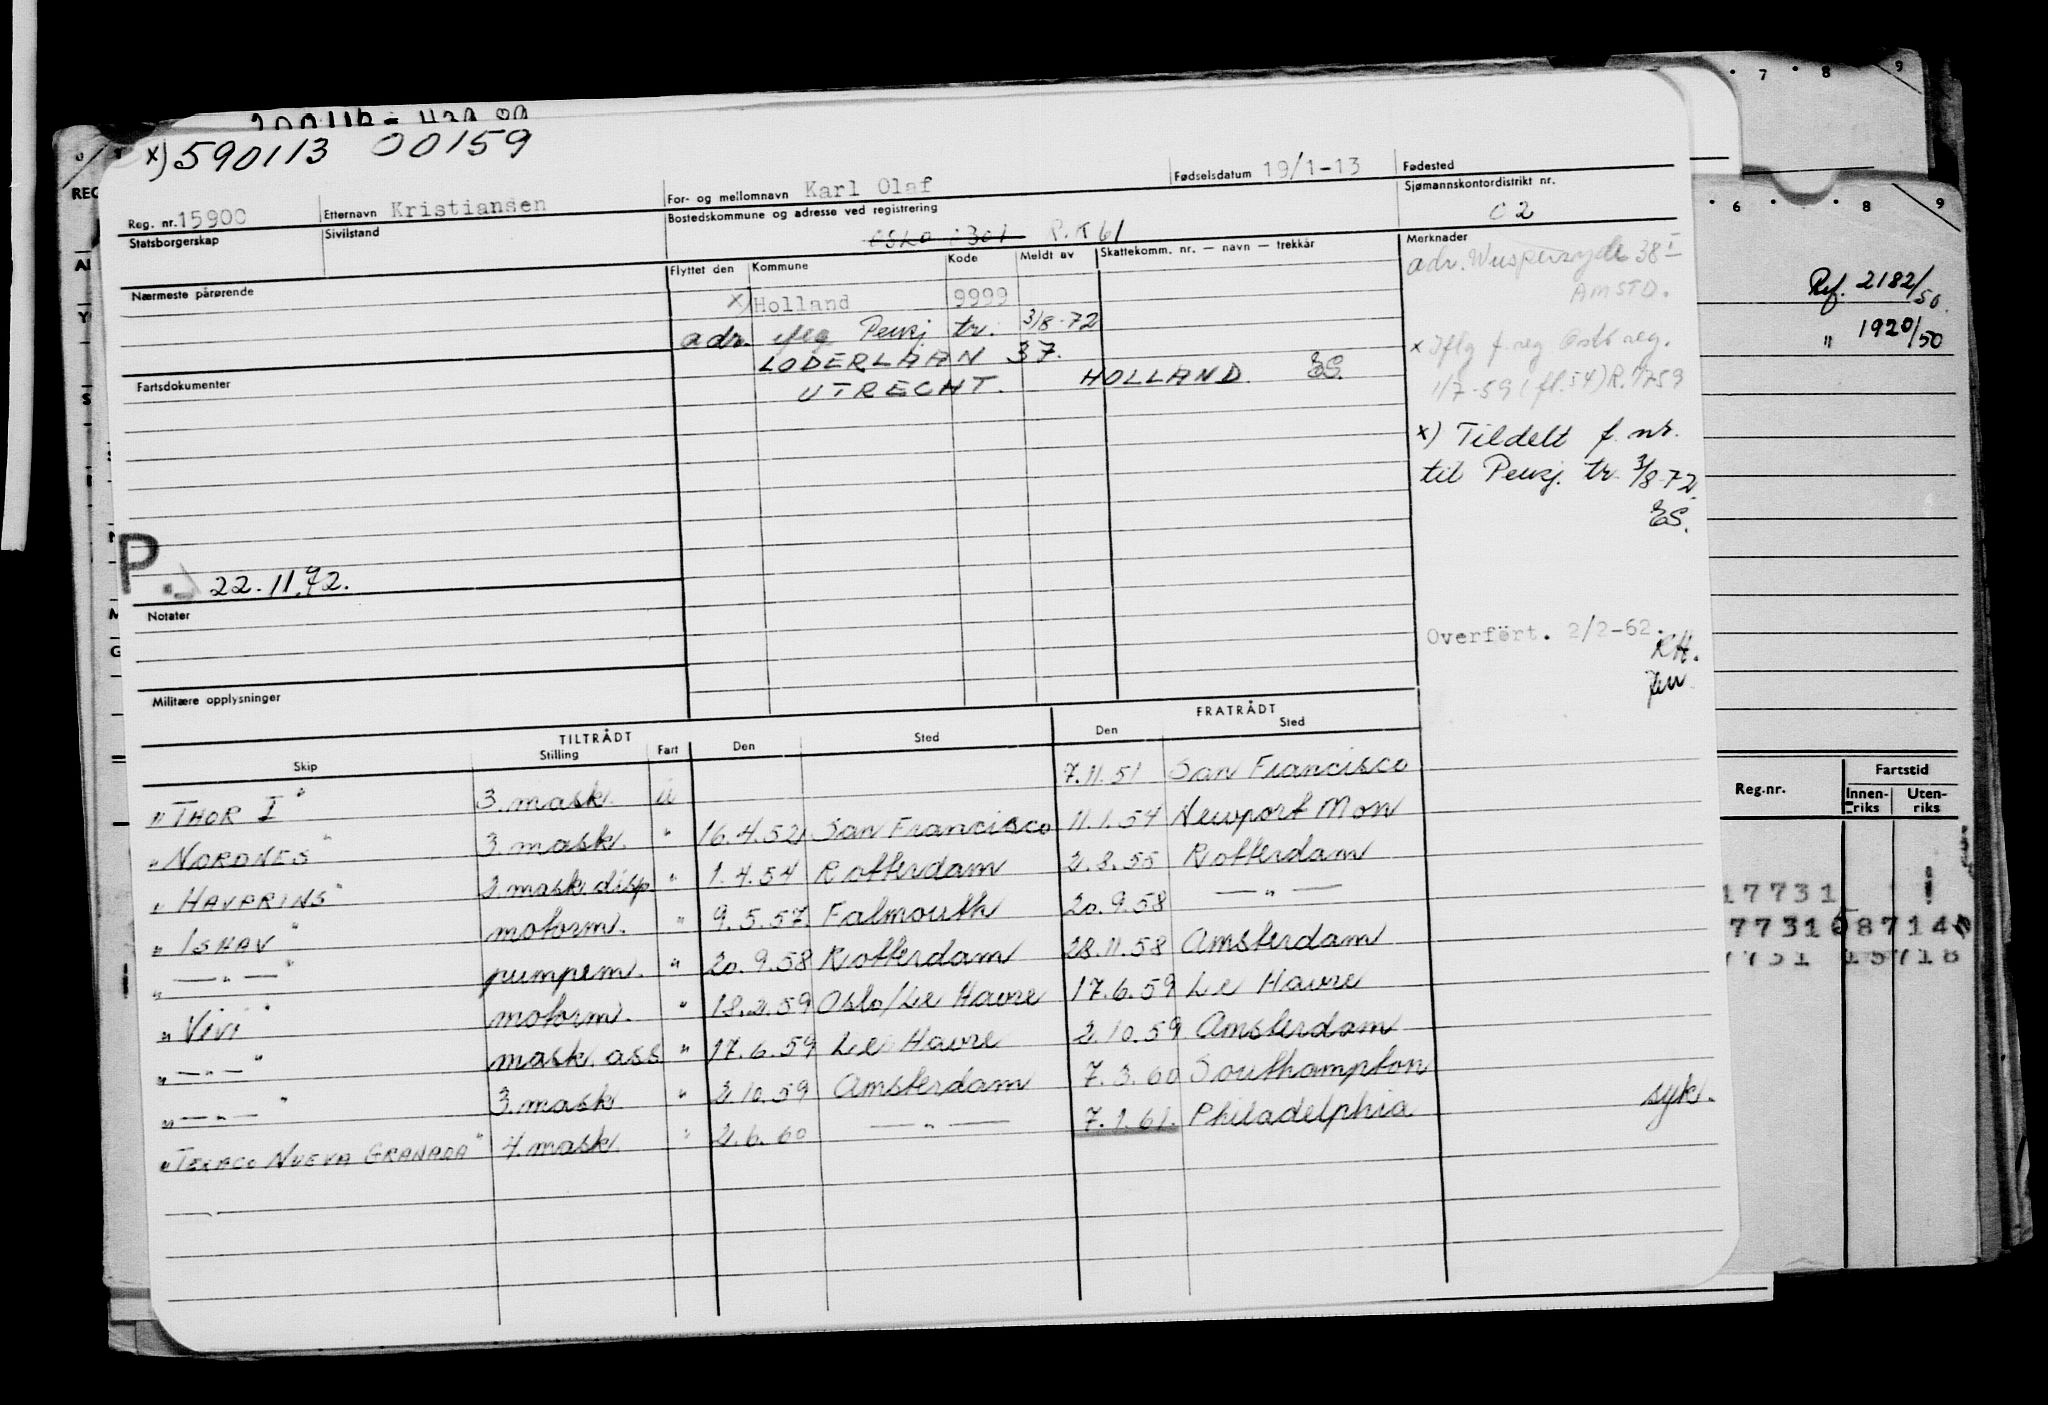 x) 590113 00159
Reg. nr. 15900 Etternavn Kristiansen For- og mellomnavn Karl Olaf Fødselsdatum 19/1-13 Fødested
Statsborgerskap Sivilstand Bostedskommune og adresse ved registrering Sjømannskontordistrikt nr.
Oslo 0301 P.T 61 02
Nærmeste pårørende Flyttet den Kommune Kode Meldt av Skattekomm. nr. — navn — trekkår Merknader
x) Holland 9999
adr. iflg Pensj tr. 3/8-72
LODERLAAN 37.
UTRECHT. HOLLAND. ES.
adr. 38 I
AMSTD.
x Iflg f.reg Oslo reg.
1/7-59 (fl. 54) R. 1759
x) Tildelt f. nr.
til Pensj. tr. 3/8-72
ES.
Fartsdokumenter
P. 22.11.72.
Notater
Overført. 2/2-62.
RH.
Militære opplysninger
TILTRÅDT FRATRÅDT
Skip Stilling Fart Den Sted Den Sted
"THOR I" 3. mask. u 7.11.51 San Francisco
"NORDNES" 3. mask. " 16.4.52 San Francisco 11.1.54 Newport Mon
"HAVPRINS" 2. mask. disp " 1.4.54 Rotterdam 2.8.55 Rotterdam
"ISHAV" motorm. " 9.5.57 Falmouth 20.9.58 — " —
" — " — " pumpem. " 20.9.58 Rotterdam 28.11.58 Amsterdam
"VIVI" motorm. " 18.2.59 Oslo/Le Havre 17.6.59 Le Havre
" — " — " mask. ass " 17.6.59 Le Havre 2.10.59 Amsterdam
" — " — " 3. mask. " 2.10.59 Amsterdam 7.3.60 Southampton
"TEXACO NUEVA GRANADA" 4. mask. " 2.6.60 — " — 7.1.61. Philadelphia syk.
7 8 9
6 8 9
Ref. 2182/50.
" 1920/50
Reg.nr. Fartstid
Innenriks Utenriks
17731